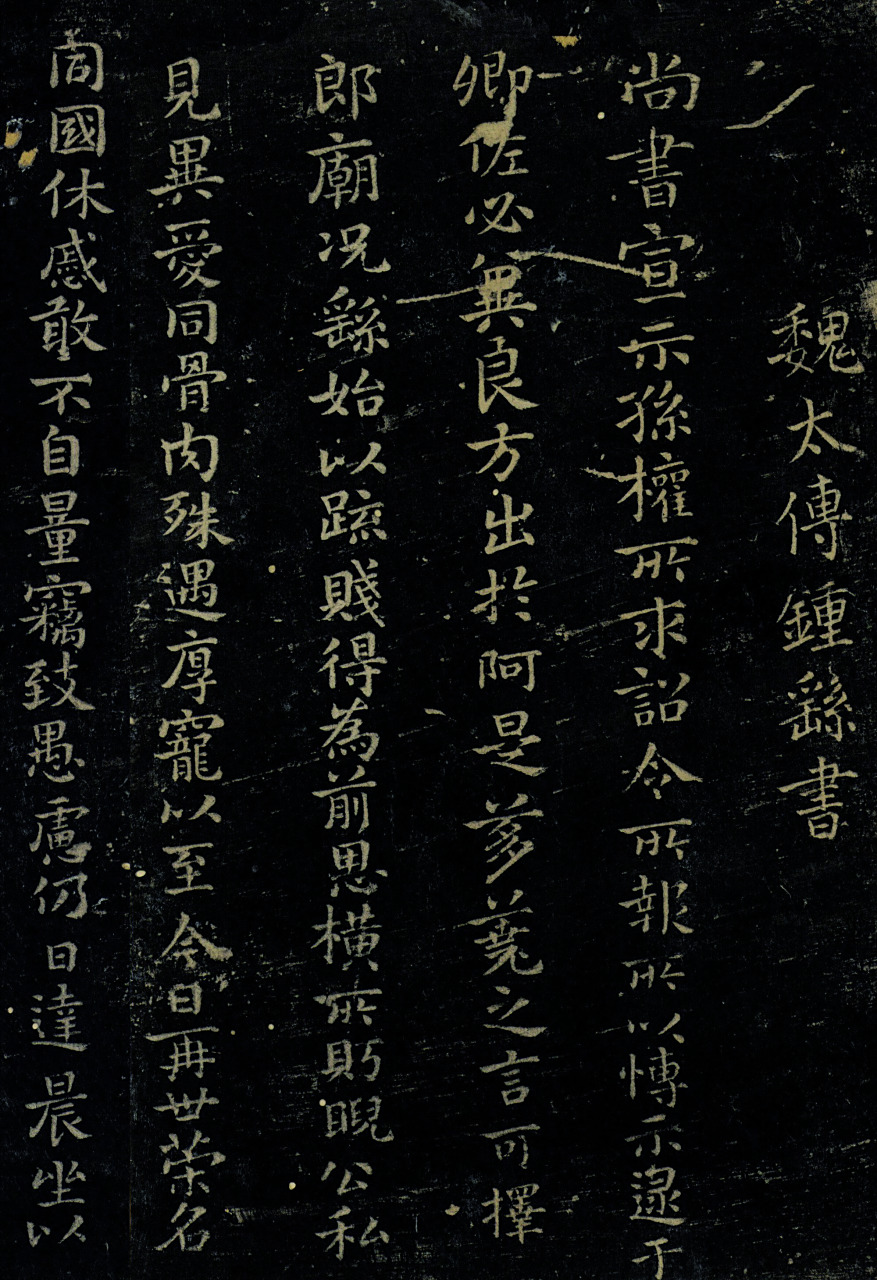 魏太傅鍾繇書
尚書宣示孫權所求詔令所報所以博示逮于
卿佐必異良方出於阿是芻蕘之言可擇
郎廟况繇始以疏賤得為前恩橫所眄睨公私
見異愛同骨肉殊遇厚寵以至今日再世榮名
同國休慼敢不自量竊致愚慮仍日達晨坐以